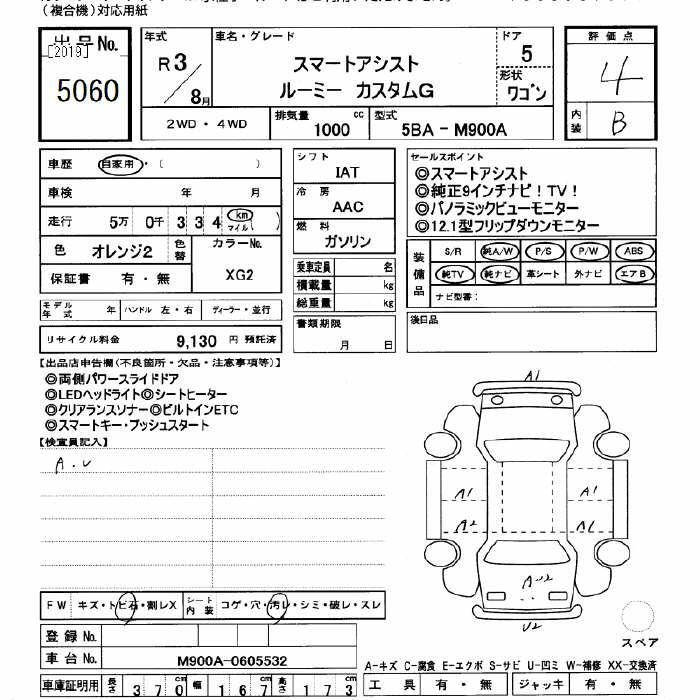 （複合機）対応用紙
出品No.
[2019]
5060
年式
R3/8月
車名・グレード
スマートアシスト
ルーミー カスタムG
ドア
5
形状
ワゴン
評価点
4
内装
B
2WD・4WD
排気量
1000 cc
型式
5BA - M900A
車歴 自家用・（ ）
車検 年 月
走行 5万 0千 3 3 4 km マイル（ ）
色 オレンジ2
色替
カラーNo.
XG2
保証書 有・無
モデル年式 年
ハンドル 左・右
ディーラー・並行
リサイクル料金 9,130 円 預託済
シフト
IAT
冷房
AAC
燃料
ガソリン
乗車定員 名
積載量 kg
総重量 kg
書類期限
月 日
セールスポイント
◎スマートアシスト
◎純正9インチナビ！TV！
◎パノラミックビューモニター
◎12.1型フリップダウンモニター
装備品
S/R 純A/W P/S P/W ABS
純TV 純ナビ 革シート 外ナビ エアB
ナビ型番：
後日品
【出品店申告欄（不良箇所・欠品・注意事項等）】
◎両側パワースライドドア
◎LEDヘッドライト◎シートヒーター
◎クリアランスソナー◎ビルトインETC
◎スマートキー・プッシュスタート
【検査員記入】
A.U
A1
A1
A1
A2
A1
A-U2
U2
スペア
FW キズ・トビ石・割レX
シート内装 コゲ・穴・汚レ・シミ・破レ・スレ
登録No.
車台No. M900A-0605532
車庫証明用 長さ 370cm 幅 167cm 高さ 173
A-キズ C-腐食 E-エクボ S-サビ U-凹ミ W-補修 XX-交換済
工具 有・無 ジャッキ 有・無